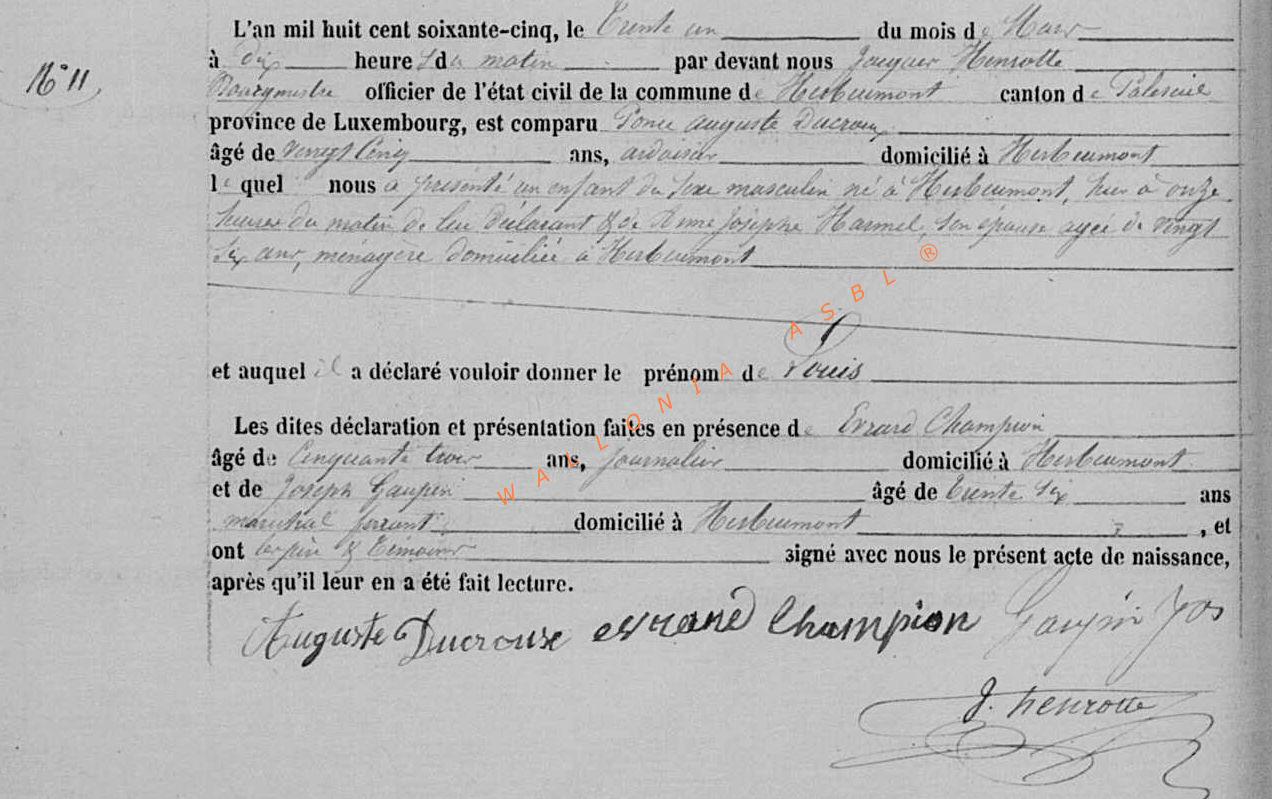 L'an mil huit cent soixante-cinq, le trente un du mois de Mars
N° 11
à dix heures du matin par devant nous Jacques Henrotte
Bourgmestre officier de l'état civil de la commune de Herbeumont canton de Paliseul
province de Luxembourg, est comparu Ponce auguste Ducroux
âgé de vingt cinq ans, ardoisier domicilié à Herbeumont
le quel nous a présenté un enfant du sexe masculin né à Herbeumont, hier à onze
heures du matin de lui déclarant & de Anne Josephe Harmel, son épouse agée de vingt
six ans, ménagère domiciliée à Herbeumont
et auquel il a déclaré vouloir donner le prénom de Louis
Les dites déclaration et présentation faites en présence de Evrard Champion
âgé de Cinquante trois ans, journalier domicilié à Herbeumont
et de Joseph Gaupin âgé de trente six ans
maréchal ferrant domicilié à Herbeumont , et
ont les père & témoins signé avec nous le présent acte de naissance,
après qu'il leur en a été fait lecture.
Auguste Ducrouxe evrard Champion Gaupin Jos
J. henrotte
WALLONIA ASBL ®